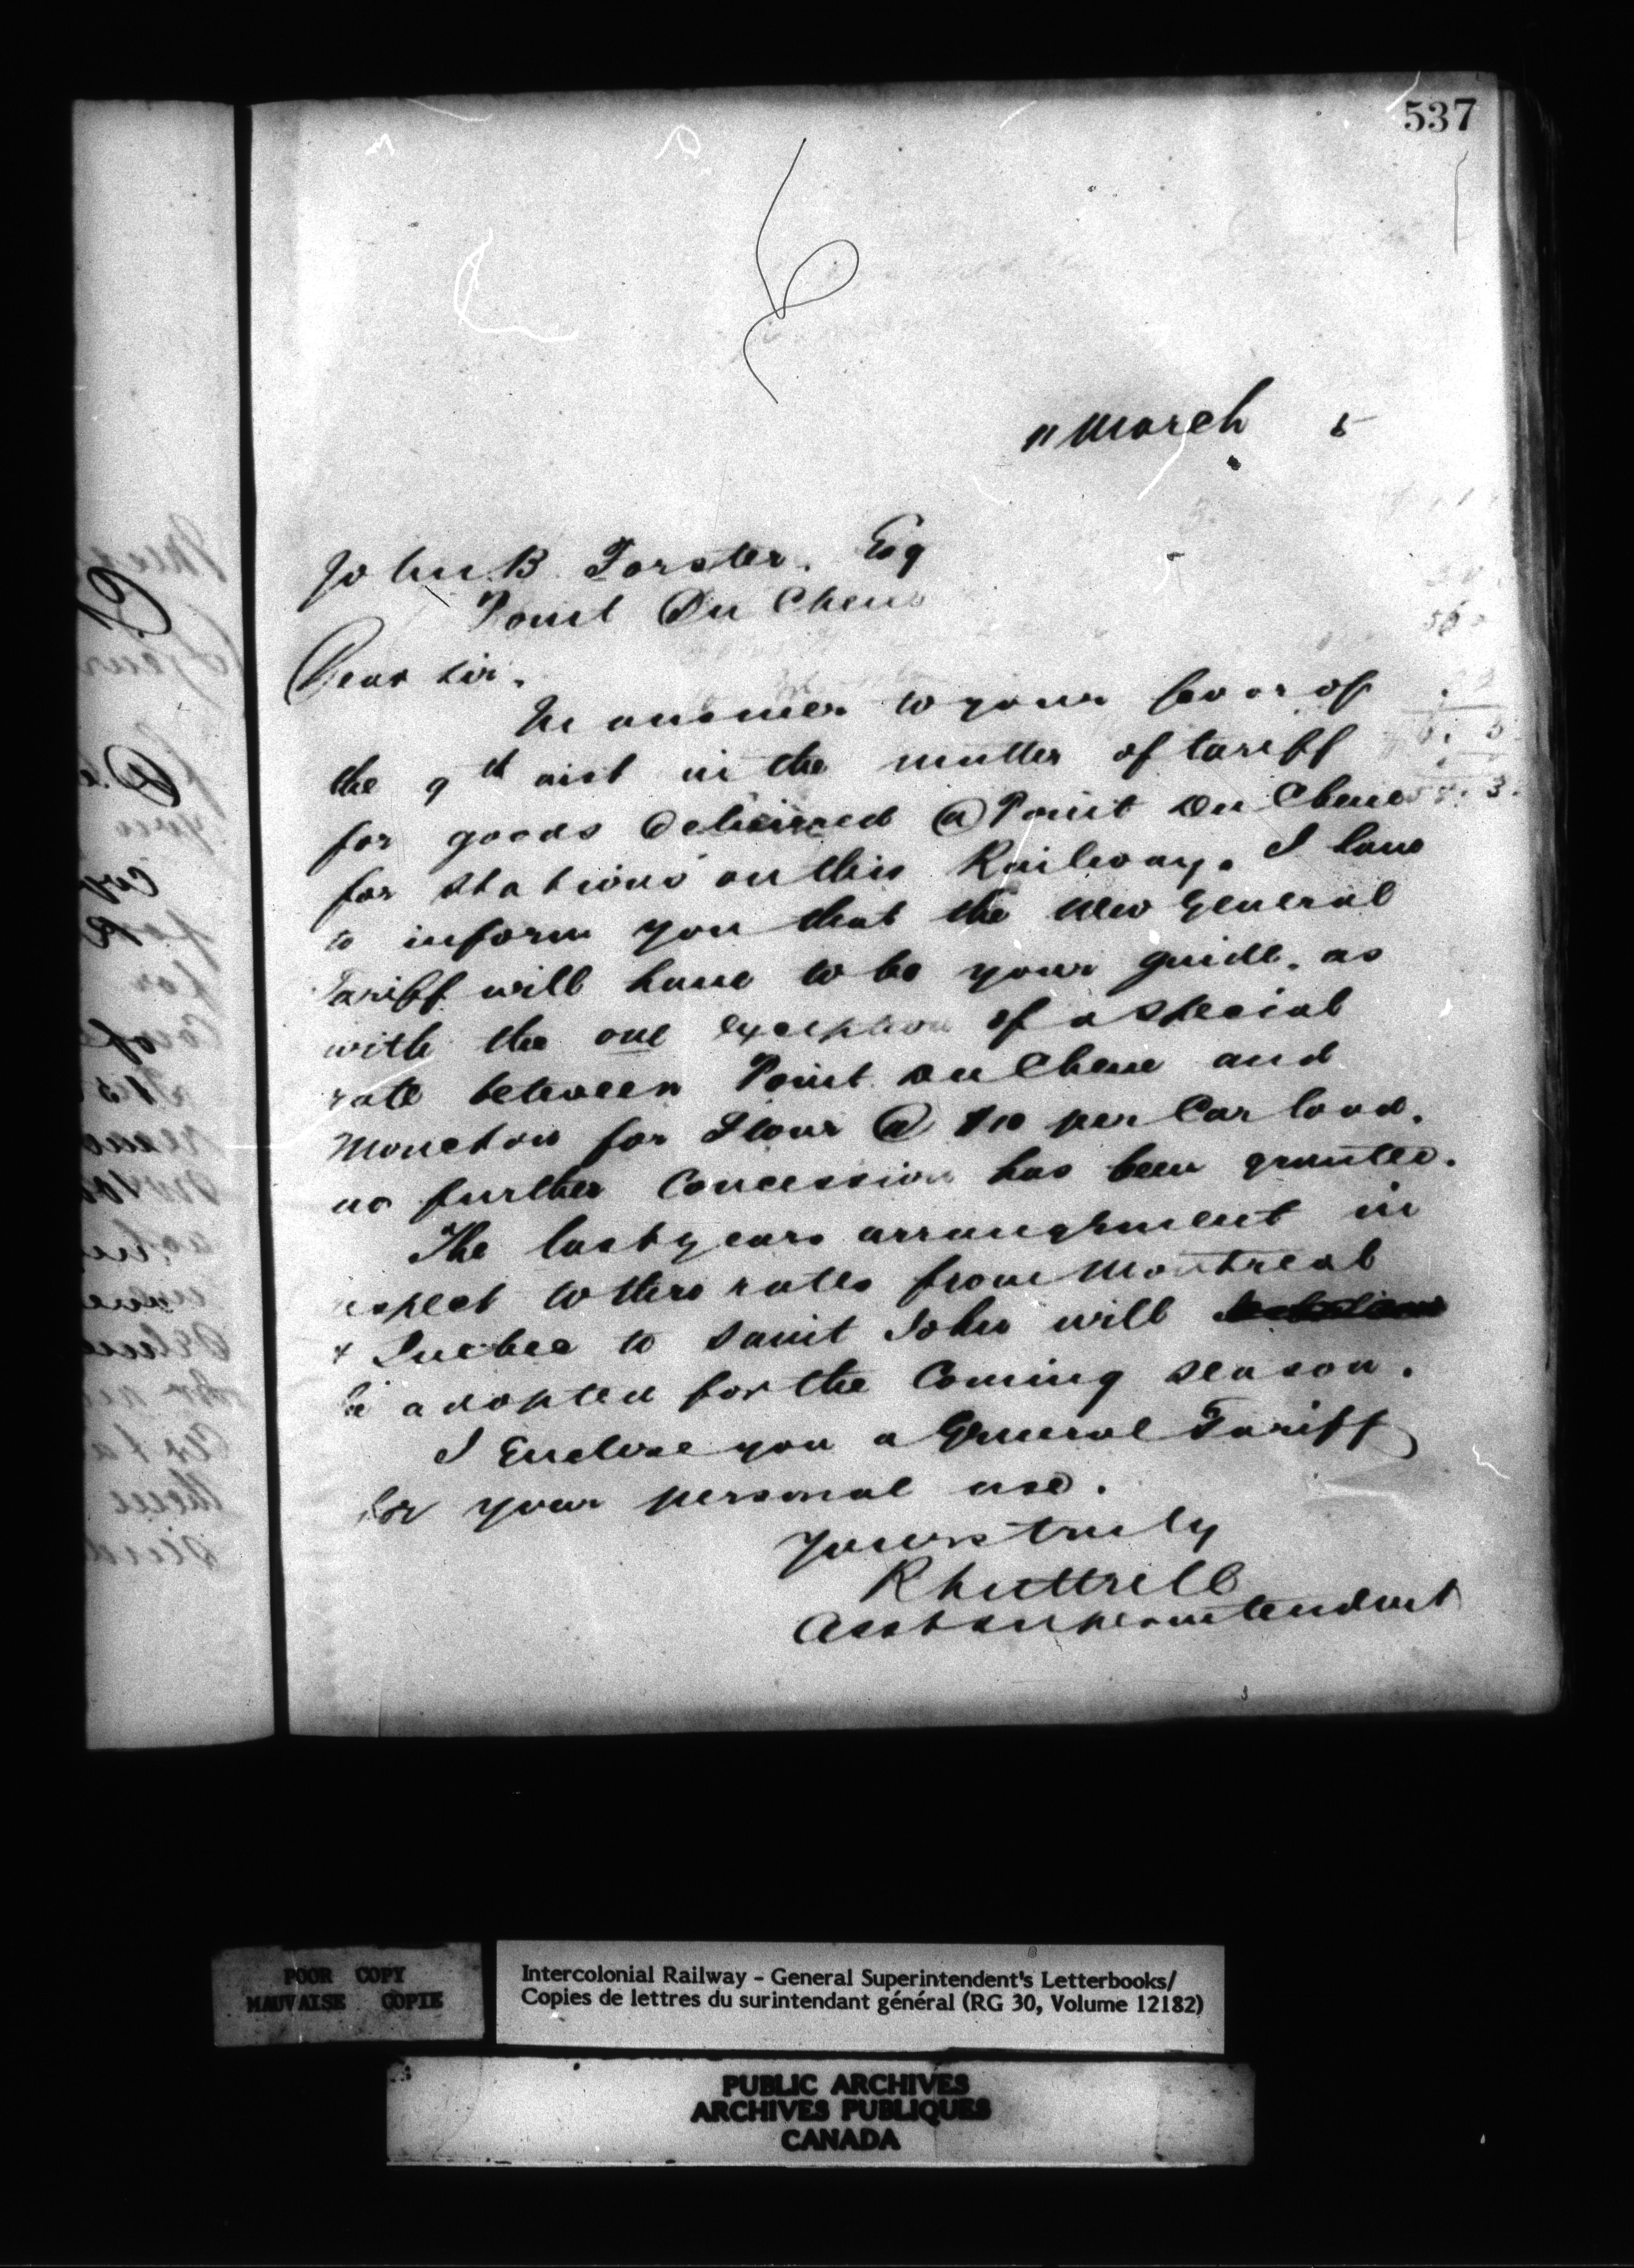 537
11 March 5
John B Forster. Esq
Point Du Chene
Dear Sir,
In answer to your favor of
the 9th inst in the matter of tariff
for goods delivered @ Point Du Chene
for stations on this Railway. I have
to inform you that the New General
Tariff will have to be your guide. as
with the one exception of a special
rate between Point Du Chene and
Moncton for Flour @ $10 per Car load.
no further Concession has been granted.
The last years arrangement in
respect to thro rates from Montreal
& Quebec to Saint John will
be adopted for the Coming season.
I Enclose you a General Tariff
for your personal use.
Yours truly
R Luttrell
Asst Superintendent
POOR COPY
MAUVAISE COPIE
Intercolonial Railway - General Superintendent's Letterbooks/
Copies de lettres du surintendant général (RG 30, Volume 12182)
PUBLIC ARCHIVES
ARCHIVES PUBLIQUES
CANADA